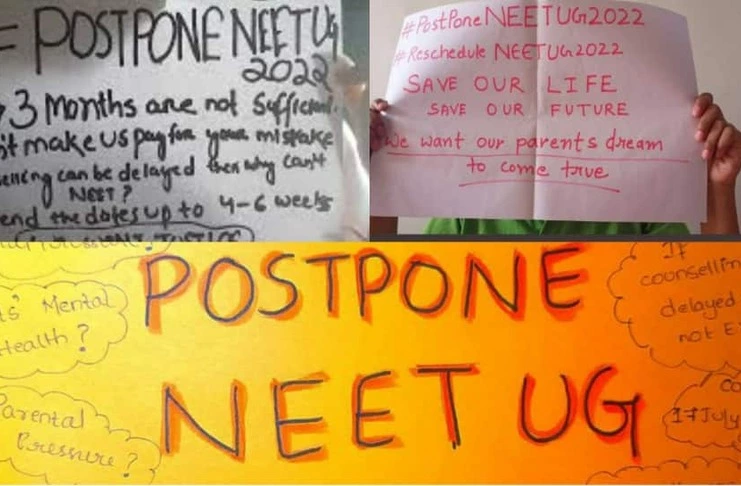 = POSTPONE NEETUG
2022
3 Months are not Sufficient.
make us pay for your mistake
can be delayed then why can't
NEET?
end the dates up to 4-6 weeks
#PostPone NEETUG2022
#Reschedule NEETUG2022
SAVE OUR LIFE
SAVE OUR FUTURE
We want our parents dream
to come true
POSTPONE
NEET UG
Mental
Health ?
Parental
Pressure ?
If
delayed
not
17 July